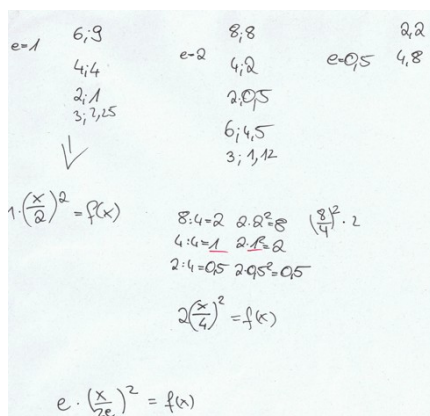 e=1
6;9
4;4
2;1
3;2,25
1·(x/2)² = f(x)
e=2
8;8
4;2
2;0,5
6;4,5
3;1,12
8:4=2 2·2²=8 (8/4)²·2
4:4=1 2·1²=2
2:4=0,5 2·0,5²=0,5
2(x/4)² = f(x)
e=0,5
2,2
4,8
e·(x/2e)² = f(x)